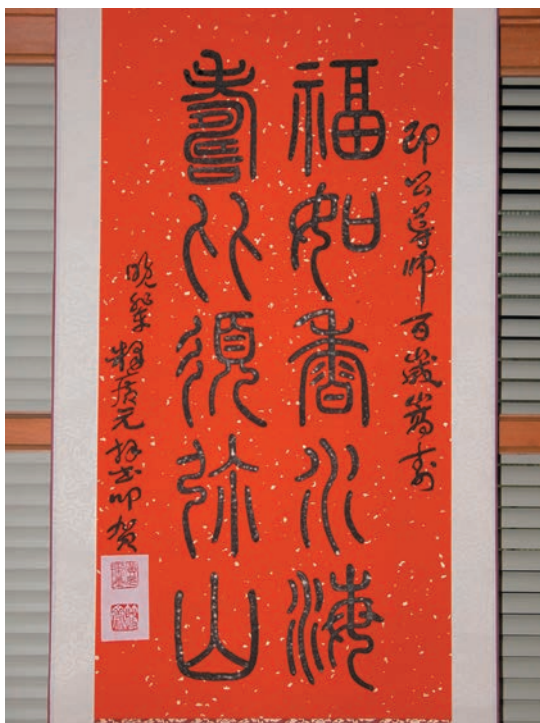 印公導師百歲嵩壽
福如香水海
壽比須弥山
晚學釋廣元拜書叩賀